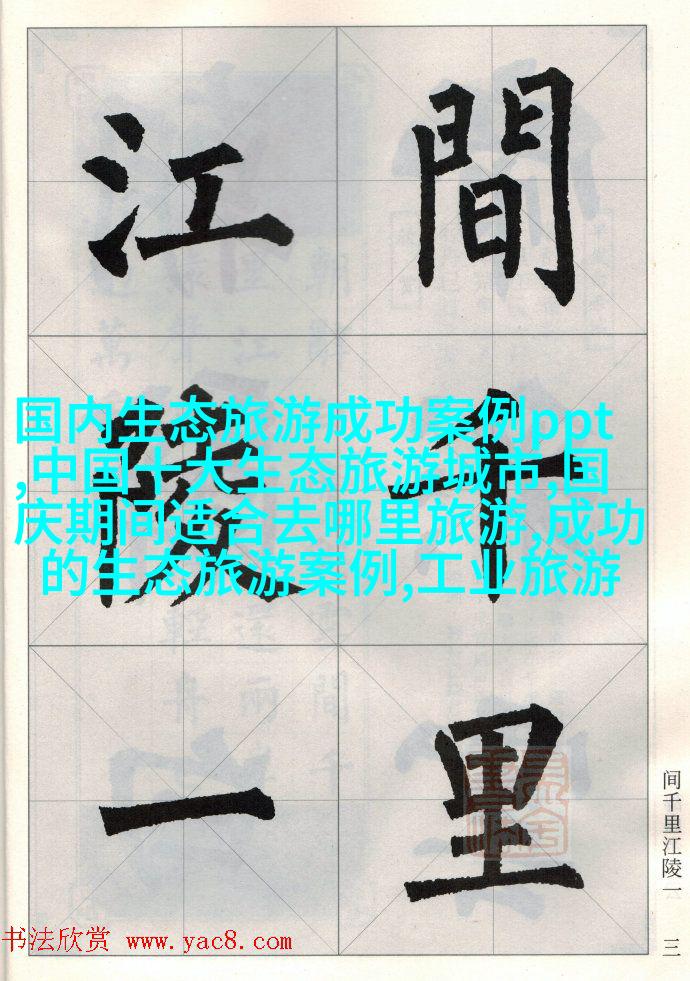 間千里
江陵一
国内生态旅游成功案例ppt
,中国十大生态旅游城市,国
庆期间适合去哪里旅游,成功
的生态旅游案例,工业旅游
间千里江陵一
三
书法欣赏 www.yac8.com